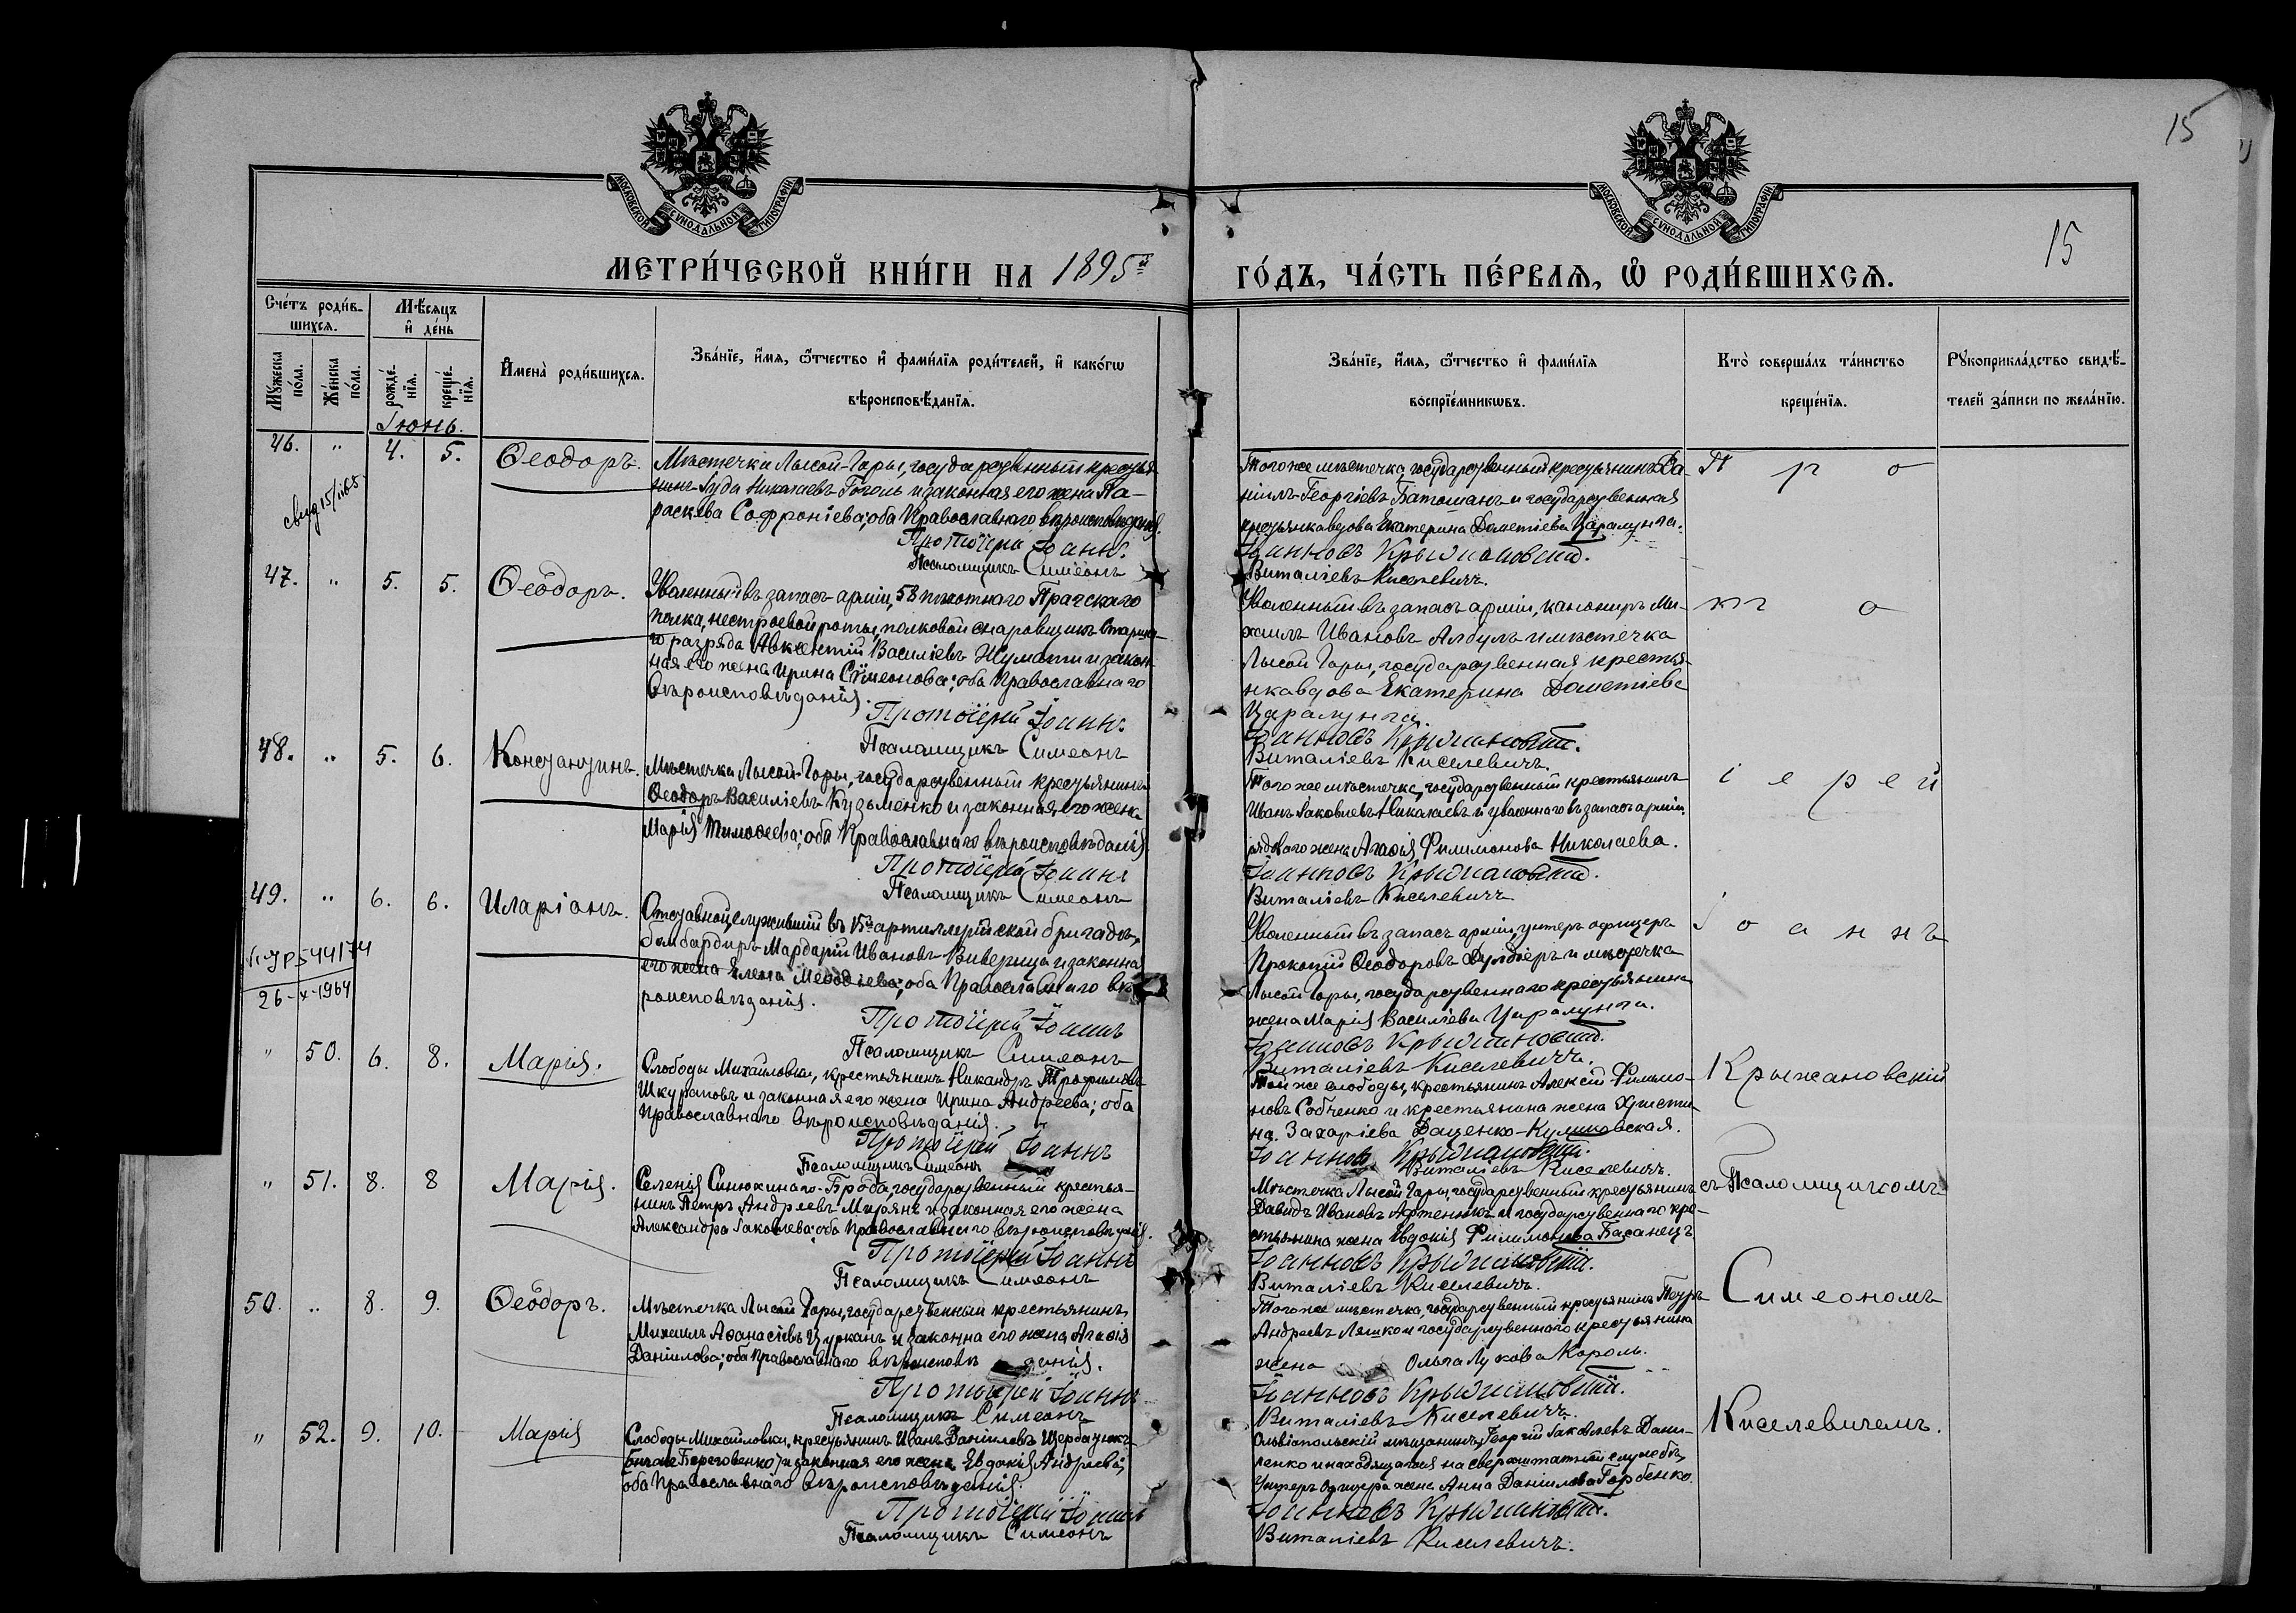 15
МОСКОВСКОЙ СѴНОДАЛЬНОЙ ТИПОГРАФІИ
МОСКОВСКОЙ СѴНОДАЛЬНОЙ ТИПОГРАФІИ
МЕТРИ́ЧЕСКОЙ КНИ́ГИ НА 1895й
ГО́ДЪ, ЧА́СТЬ ПЕ́РВАѦ, Ѡ РОДИ́ВШИХСѦ.
15
Сче́тъ роди́в-
шихсѧ.
Мѣ́сѧцъ
и҆ де́нь
Мꙋ́жеска по́ла.
Же́нска по́ла.
рожде́-нїѧ.
креще́-нїѧ.
И҆мена̀ роди́вшихсѧ.
Зва́нїе, и҆́мѧ, ѻ҆́тчество и҆ фами́лїѧ роди́телей, и҆ како́гѡ
вѣроисповѣ́данїѧ.
Зва́нїе, и҆́мѧ, ѻ҆́тчество и҆ фами́лїѧ
воспрїе́мникѡвъ.
Кто̀ соверша́лъ та́инство
креще́нїѧ.
Рꙋкоприкла́дство свидѣ́-
телей за́писи по жела́нїю.
Іюнь.
46. " 4. 5. Ѳеодоръ.
Мѣстечка Лысой-Горы, государственный крестья-
нинъ Іуда Николаевъ Гоголь и законная его жена Па-
раскева Софроніева; оба Православнаго вѣроисповѣданія.
Протоіерей Іоаннъ
Псаломщикъ Симеонъ
Того же мѣстечка, государственный крестьянинъ Да-
ніилъ Георгіевъ Батошанъ и государственная
крестьянка вдова Екатерина Дометіева Царалунга.
Іоанновъ Крыжановскій.
Виталіевъ Киселевичъ.
П р о
свид 15/
47. " 5. 5. Ѳеодоръ.
Уволенный въ запасъ арміи, 58 пѣхотнаго Прагскаго
полка, нестроевой роты, полковой закройщикъ старша-
го разряда Авксентій Василіевъ Жумати и закон-
ная его жена Ирина Сѵмеонова; оба Православнаго
вѣроисповѣданія.
Протоіерей Іоаннъ
Псаломщикъ Симеонъ
Уволенный въ запасъ арміи, канониръ Ми-
хаилъ Ивановъ Албулъ и мѣстечка
Лысой Горы, государственная крестья-
нка вдова Екатерина Дометіева
Царалунга.
Іоанновъ Крыжановскій.
Виталіевъ Киселевичъ.
т о
48. " 5. 6. Константинъ.
Мѣстечка Лысой-Горы, государственный крестьянинъ
Ѳеодоръ Василіевъ Кузьменко и законная его жена
Марія Тимоѳеева; оба Православнаго вѣроисповѣданія.
Протоіерей Іоаннъ
Псаломщикъ Симеонъ
Того же мѣстечка, государственный крестьянинъ
Иванъ Іаковлевъ Николаевъ и уволеннаго въ запасъ арміи
рядоваго жена Агаѳія Филимонова Николаева.
Іоанновъ Крыжановскій.
Виталіевъ Киселевичъ
і е р е й
49. " 6. 6. Иларіонъ.
Отставной, служившій въ 15й артиллерійской бригадѣ,
бомбардиръ Мардарій Ивановъ Виверица и законна
его жена Елена Меѳодіева; оба Православнаго вѣ-
роисповѣданія.
Протоіерей Іоаннъ
Псаломщикъ Симеонъ
Уволенный въ запасъ арміи, унтеръ офицеръ
Прокопій Ѳеодоровъ Дулдіеръ и мѣстечка
Лысой Горы, государственнаго крестьянина
жена Марія Василіева Царалунга.
Іоанновъ Крыжановскій.
Виталіевъ Киселевичъ.
І о а н н ъ
544174
26-X-1964
" 50. 6. 8. Марія.
Слободы Михайловки, крестьянинъ Никандръ Трофимовъ
Шкураповъ и законная его жена Ирина Андреева; оба
Православнаго вѣроисповѣданія.
Протоіерей Іоаннъ
Псаломщикъ Симеонъ
Той же слободы, крестьянинъ Алексій Филимо-
новъ Собченко и крестьянина жена Христи-
на Захаріева Даценко-Куликовская.
Іоанновъ Крыжановскій.
Виталіевъ Киселевичъ.
Крыжановскій
" 51. 8. 8 Марія.
Селенія Синюхинаго-Брода, государственный крестья-
нинъ Петръ Андреевъ Мирянъ и законная его жена
Александра Іаковлева; оба Православнаго вѣроисповѣданія.
Протоіерей Іоаннъ
Псаломщикъ Симеонъ
Мѣстечка Лысой Горы, государственный крестьянинъ
Давидъ Ивановъ Артенюкъ и государственнаго кре-
стьянина жена Евдокія Филимонова Басанецъ
Іоанновъ Крыжановскій.
Виталіевъ Киселевичъ.
съ Псаломщикомъ
50. " 8. 9. Ѳеодоръ.
Мѣстечка Лысой Горы, государственный крестьянинъ
Михаилъ Аѳанасіевъ Цурканъ и законна его жена Агаѳія
Даніилова; оба Православнаго вѣроисповѣданія.
Протоіерей Іоаннъ
Псаломщикъ Симеонъ
Того же мѣстечка, государственный крестьянинъ Петръ
Андреевъ Ляшко и государственнаго крестьянина
жена Ольга Лукова Король.
Іоанновъ Крыжановскій.
Виталіевъ Киселевичъ.
Симеономъ
" 52. 9. 10. Марія
Слободы Михайловки, крестьянинъ Иванъ Даніиловъ Щербатюкъ
(онъ же Береговенко) и законная его жена Евдокія Андреева;
оба Православнаго вѣроисповѣданія.
Протоіерей Іоаннъ
Псаломщикъ Симеонъ
Ольвіопольскій мѣщанинъ Георгій Іаковлевъ Дани-
ленко и находящагося на сверхштатной службѣ
Унтеръ Офицера жена Анна Даніилова Горбенко.
Іоанновъ Крыжановскій.
Виталіевъ Киселевичъ.
Киселевичемъ.